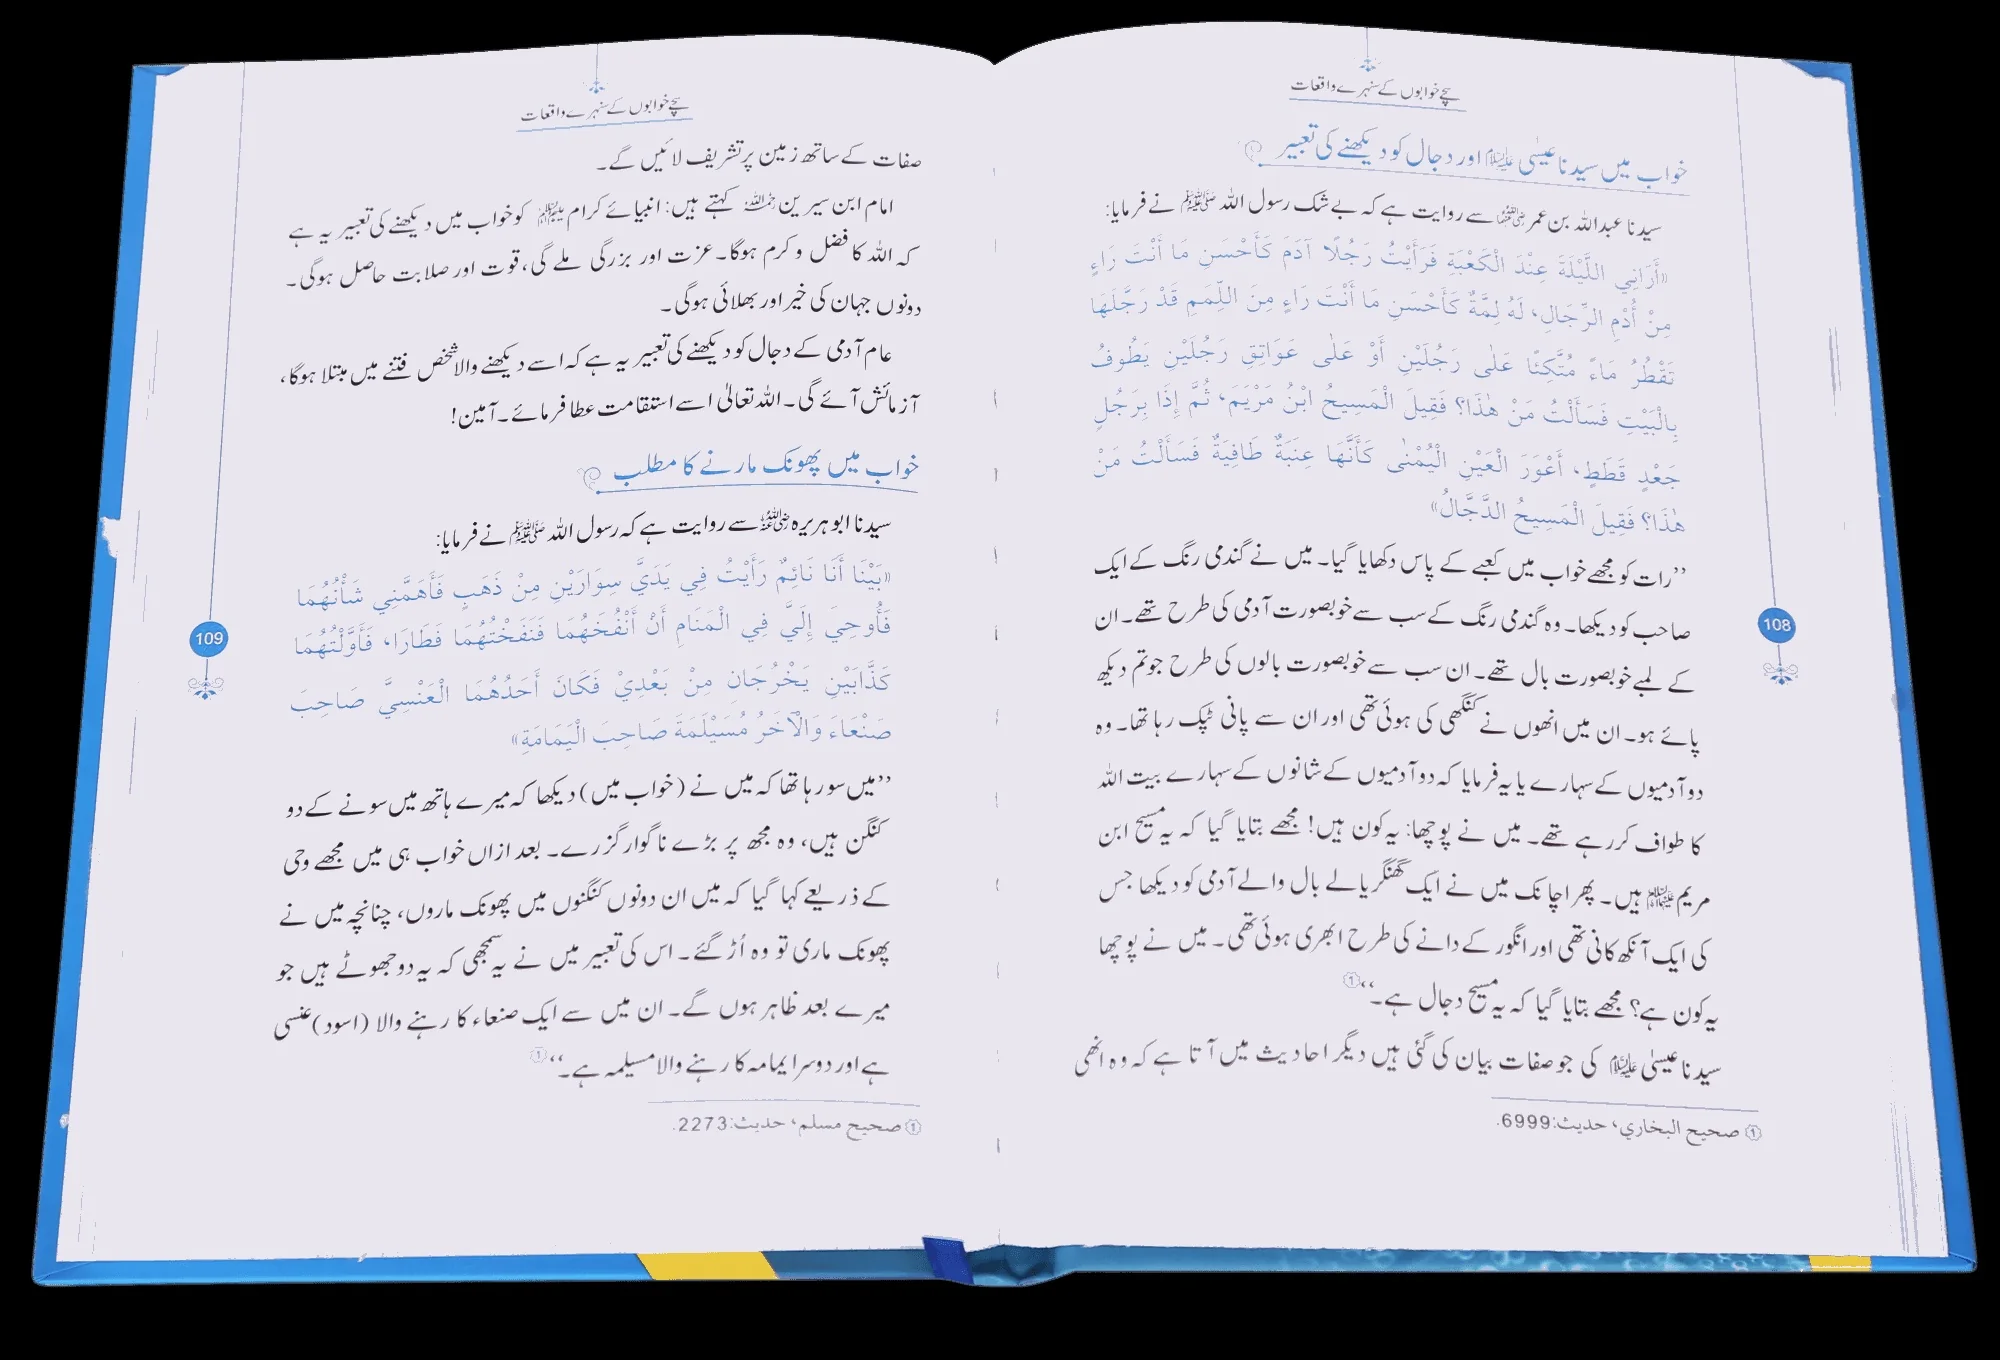 سچے خوابوں کے سنہرے واقعات
خواب میں سیدنا عیسٰی علیہ السلام اور دجال کو دیکھنے کی تعبیر
سیدنا عبداللہ بن عمر رضی اللہ عنہما سے روایت ہے کہ بے شک رسول اللہ ﷺ نے فرمایا:
«أَرَانِي اللَّيْلَةَ عِنْدَ الْكَعْبَةِ فَرَأَيْتُ رَجُلًا آدَمَ كَأَحْسَنِ مَا أَنْتَ رَاءٍ
مِنْ أُدْمِ الرِّجَالِ، لَهُ لِمَّةٌ كَأَحْسَنِ مَا أَنْتَ رَاءٍ مِنَ اللِّمَمِ قَدْ رَجَّلَهَا
تَقْطُرُ مَاءً مُتَّكِئًا عَلٰى رَجُلَيْنِ أَوْ عَلٰى عَوَاتِقِ رَجُلَيْنِ يَطُوفُ
بِالْبَيْتِ فَسَأَلْتُ مَنْ هٰذَا؟ فَقِيلَ الْمَسِيحُ ابْنُ مَرْيَمَ، ثُمَّ إِذَا بِرَجُلٍ
جَعْدٍ قَطَطٍ، أَعْوَرَ الْعَيْنِ الْيُمْنٰى كَأَنَّهَا عِنَبَةٌ طَافِيَةٌ فَسَأَلْتُ مَنْ
هٰذَا؟ فَقِيلَ الْمَسِيحُ الدَّجَّالُ»
’’رات کو مجھے خواب میں کعبے کے پاس دکھایا گیا۔ میں نے گندمی رنگ کے ایک
صاحب کو دیکھا۔ وہ گندمی رنگ کے سب سے خوبصورت آدمی کی طرح تھے۔ ان
کے لمبے خوبصورت بال تھے۔ ان سب سے خوبصورت بالوں کی طرح جو تم دیکھ
پائے ہو۔ ان میں انھوں نے کنگھی کی ہوئی تھی اور ان سے پانی ٹپک رہا تھا۔ وہ
دو آدمیوں کے سہارے یا یہ فرمایا کہ دو آدمیوں کے شانوں کے سہارے بیت اللہ
کا طواف کر رہے تھے۔ میں نے پوچھا: یہ کون ہیں! مجھے بتایا گیا کہ یہ مسیح ابن
مریم علیہما السلام ہیں۔ پھر اچانک میں نے ایک گھنگریالے بال والے آدمی کو دیکھا جس
کی ایک آنکھ کانی تھی اور انگور کے دانے کی طرح ابھری ہوئی تھی۔ میں نے پوچھا
یہ کون ہے؟ مجھے بتایا گیا کہ یہ مسیح دجال ہے۔‘‘①
سیدنا عیسٰی علیہ السلام کی جو صفات بیان کی گئی ہیں دیگر احادیث میں آتا ہے کہ وہ انھی
① صحيح البخاري، حديث:6999.
108
سچے خوابوں کے سنہرے واقعات
صفات کے ساتھ زمین پر تشریف لائیں گے۔
امام ابن سیرین رحمہ اللہ کہتے ہیں: انبیائے کرام علیہم السلام کو خواب میں دیکھنے کی تعبیر یہ ہے
کہ اللہ کا فضل و کرم ہوگا۔ عزت اور بزرگی ملے گی، قوت اور صلابت حاصل ہوگی۔
دونوں جہان کی خیر اور بھلائی ہوگی۔
عام آدمی کے دجال کو دیکھنے کی تعبیر یہ ہے کہ اسے دیکھنے والا شخص فتنے میں مبتلا ہوگا،
آزمائش آئے گی۔ اللہ تعالیٰ اسے استقامت عطا فرمائے۔ آمین!
خواب میں پھونک مارنے کا مطلب
سیدنا ابو ہریرہ رضی اللہ عنہ سے روایت ہے کہ رسول اللہ ﷺ نے فرمایا:
«بَيْنَا أَنَا نَائِمٌ رَأَيْتُ فِي يَدَيَّ سِوَارَيْنِ مِنْ ذَهَبٍ فَأَهَمَّنِي شَأْنُهُمَا
فَأُوحِيَ إِلَيَّ فِي الْمَنَامِ أَنْ أَنْفُخَهُمَا فَنَفَخْتُهُمَا فَطَارَا، فَأَوَّلْتُهُمَا
كَذَّابَيْنِ يَخْرُجَانِ مِنْ بَعْدِيْ فَكَانَ أَحَدُهُمَا الْعَنْسِيَّ صَاحِبَ
صَنْعَاءَ وَالْآخَرُ مُسَيْلَمَةَ صَاحِبَ الْيَمَامَةِ»
’’میں سو رہا تھا کہ میں نے (خواب میں) دیکھا کہ میرے ہاتھ میں سونے کے دو
کنگن ہیں، وہ مجھ پر بڑے ناگوار گزرے۔ بعد ازاں خواب ہی میں مجھے وحی
کے ذریعے کہا گیا کہ میں ان دونوں کنگنوں میں پھونک ماروں، چنانچہ میں نے
پھونک ماری تو وہ اُڑ گئے۔ اس کی تعبیر میں نے یہ سمجھی کہ یہ دو جھوٹے ہیں جو
میرے بعد ظاہر ہوں گے۔ ان میں سے ایک صنعاء کا رہنے والا (اسود) عنسی
ہے اور دوسرا یمامہ کا رہنے والا مسیلمہ ہے۔‘‘①
① صحيح مسلم، حديث:2273.
109